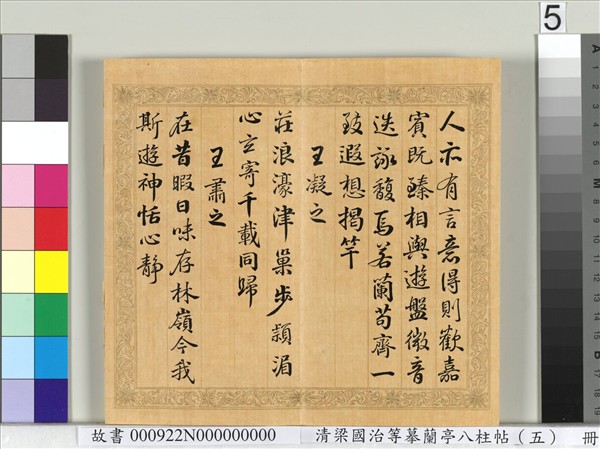 人亦有言意得則歡嘉
賓既臻相與遊盤微音
迭詠馥焉若蘭苟齊一
致遐想揭竿
王凝之
莊浪濠津巢步潁湄
心立寄千載同歸
王肅之
在昔暇日味存林嶺今我
斯遊神恬心靜
5
故書 000922N000000000 清梁國治等摹蘭亭八柱帖（五） 冊